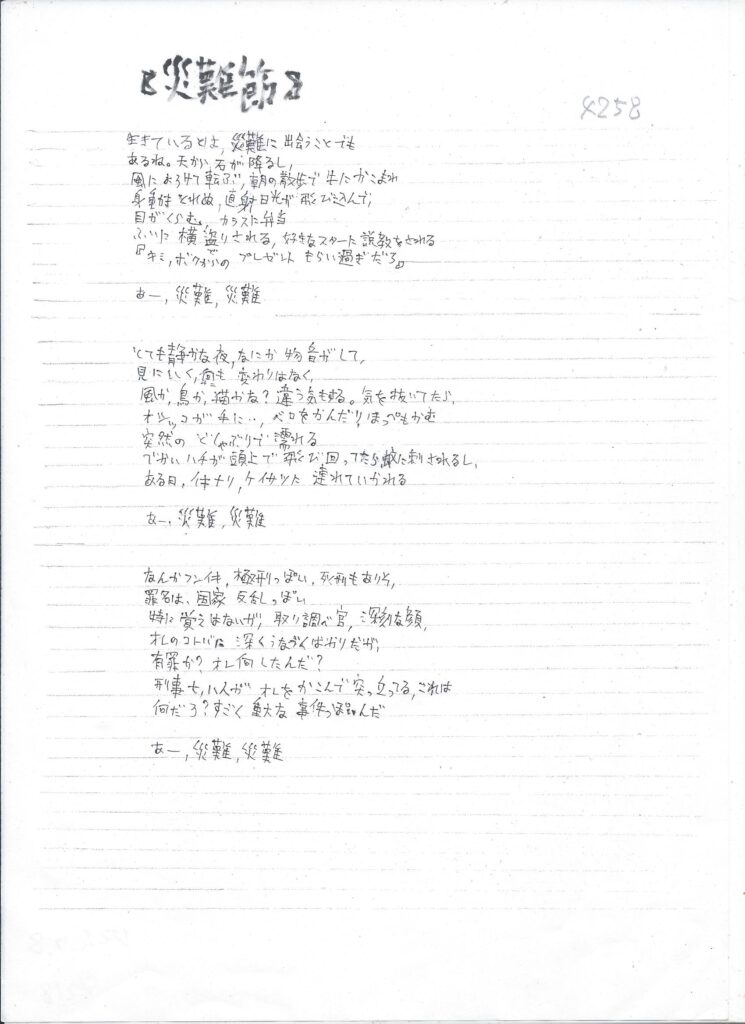 『災難節』
4258
生きているとは、災難に出会うことでも
あるね。天から石が降るし、
風によろけて転ぶ、朝の散歩で牛にかこまれ
身動きとれぬ、直射日光が飛び込んで、
目がくらむ、カラスに弁当
ふいに横盗りされる、好きなスターに説教をされる
『キミ、ボクからのプレゼントもらい過ぎだろ』
あー、災難、災難
とても静かな夜、なにか物音がして、
見にいく、何も変わりはなく、
風か、鳥か、猫かな?違う気もする。気を抜いてたら、
オシッコが手に‥、ベロをかんだり、ほっぺもかむ
突然のどしゃぶりで濡れる
でかいハチが頭上で飛び回ってたら蚊に刺されるし、
ある日、イキナリ、ケイサツに連れていかれる
あー、災難、災難
なんかフンイキ、極刑っぽい、死刑もありそ、
罪名は、国家反乱っぽい
特に覚えはないが、取り調べ官、深刻な顔、
オレのコトバに深くうなづくばかりだが、
有罪か?オレ何したんだ?
刑事七、八人がオレをかこんで突っ立ってる、これは
何だろ?すごく重大な事件っぽいんだ
あー、災難、災難